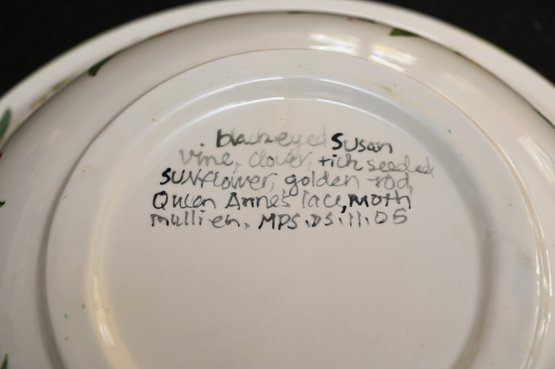 blackeyed Susan
vine, clover, tickseeded
sunflower, golden-rod,
Queen Anne's lace, moth
mullien. MPS.DS.11.05